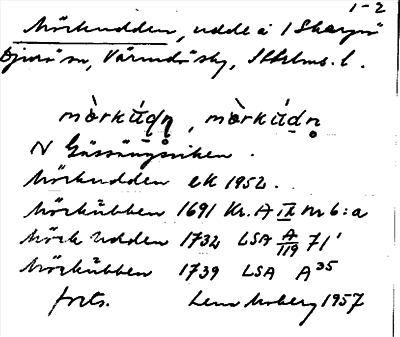 1-2
Mörkudden, udde å / Skarpö
Djurö sn, Värmdö skg, Sthlms. l.
mò̀rkúdn̥, mò̀rkúdn̥
N Gässängsviken.
Mörkudden ek 1952.
Mörkübben 1691 Kr. A IX nr 6:a
Mörk Udden 1732 LSA A/119 71'
Mörkübben 1739 LSA A35
forts. Lena Moberg 1957